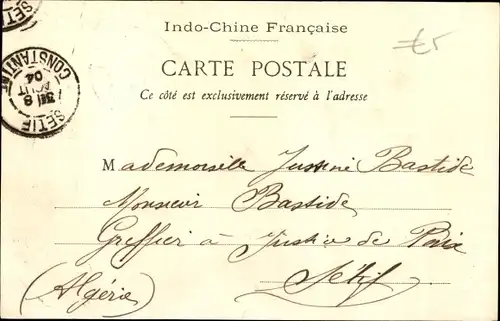 Indo-Chine Française
CARTE POSTALE
Ce côté est exclusivement réservé à l'adresse
SETIF
CONSTANTINE
8
AOUT
04
Mademoiselle Justine Bastide
Monsieur Bastide
Greffier à Justice de Paix
Sétif
(Algérie)